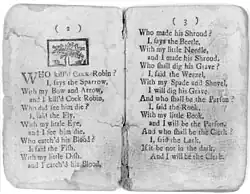 ( 2 )
WHO kill'd Cock-Robin?
I, says the Sparrow,
With my Bow and Arrow,
and I kill'd Cock Robin.
Who see him die?
I, said the Fly,
With my little Eye,
and I see him die.
Who catch'd his Blood?
I, said the Fish,
With my little Dish,
and I catch'd his Blood,
( 3 )
Who made his Shroud?
I, says the Beetle,
With my little Needle,
and I made his Shroud.
Who shall dig his Grave?
I, said the
With my Spade and Shovel,
I will dig his Grave.
And who shall be the Parson?
I, said the Rook,
With my little Book,
and I will be the Parson,
And who shall be the Clerk?
I, said the Lark,
If it be not in the dark,
And I will be the Clerk.